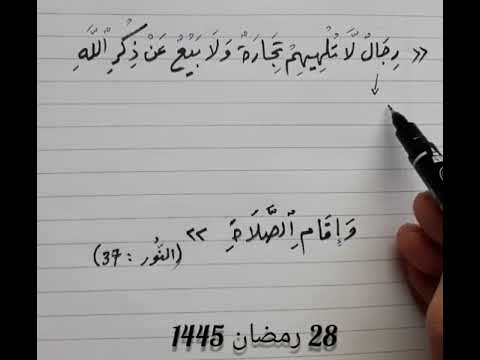 « رِجَالٌ لَّا تُلْهِيهِمْ تِجَارَةٌ وَلَا بَيْعٌ عَنْ ذِكْرِ ٱللَّهِ
وَإِقَامِ ٱلصَّلَاةِ » (النُّور : 37)
28 رمضان 1445